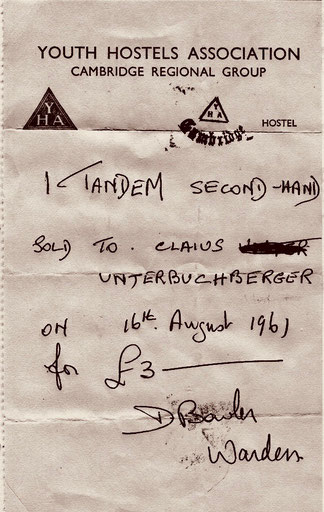 YOUTH HOSTELS ASSOCIATION
CAMBRIDGE REGIONAL GROUP
YHA
YHA
Cambridge HOSTEL
1 TANDEM SECOND-HAND
SOLD TO. CLAIUS
UNTERBUCHBERGER
ON 16th. August 1961
for £3
D
Warden